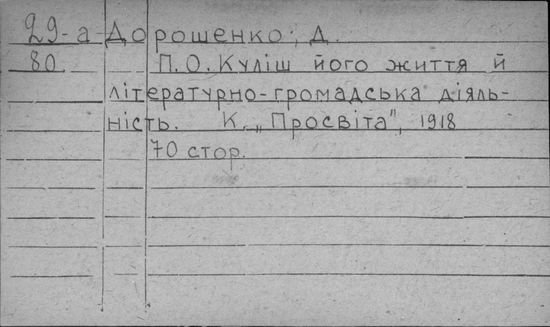 29-а- Дорошенко, Д.
80. П.О. Куліш його життя й
літературно-громадська діяль-
ність. К. „Просвіта", 1918
70 стор.